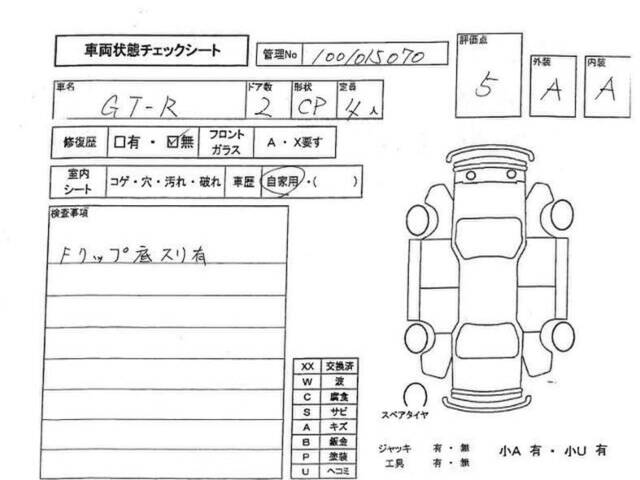 車両状態チェックシート
管理No 1001015070
評価点 5
外装 A
内装 A
車名 GT-R
ドア数 2
形状 CP
定員 4人
修復歴 □有・☑無
フロントガラス A・X要す
室内シート コゲ・穴・汚れ・破れ
車歴 自家用・( )
検査事項
Fリップ底スリ有
XX 交換済
W 波
C 腐食
S サビ
A キズ
B 鈑金
P 塗装
U ヘコミ
スペアタイヤ
ジャッキ 有・無
工具 有・無
小A 有・小U 有